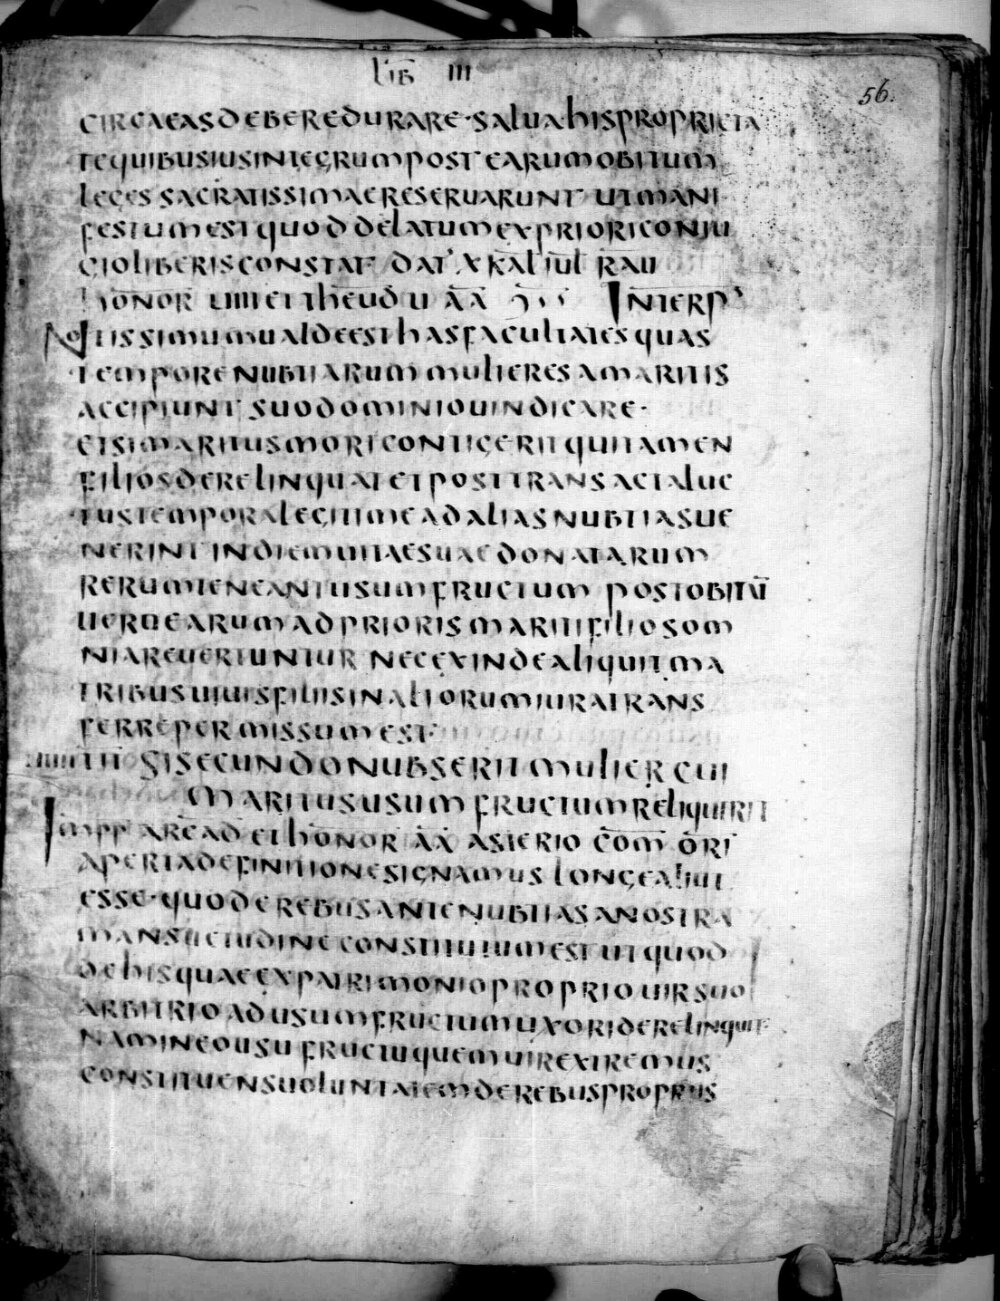 LIB III
56.
CIRCA EAS DEBERE DURARE · SALUA HIS PROPRIETA
TE QUIBUS IUS INTEGRUM POST EARUM OBITUM
LEGES SACRATISSIMAE RESERUARUNT UT MANI
FESTUM EST QUOD DELATUM EX PRIORI CONIU
GIO LIBERIS CONSTAT DAT X KAL IUL RAU
HONOR UIIII ET THEUD U AA INTERP
NOTISSIMUM UALDE EST HAS FACULTATES QUAS
TEMPORE NUBTIARUM MULIERES A MARITIS
ACCIPIUNT SUO DOMINIO UINDICARE ·
ET SI MARITUS MORI CONTIGERIT QUI TAMEN
FILIOS DERELINQUAT ET POST TRANSACTA LUC
TUS TEMPORA LEGITIME AD ALIAS NUBTIAS UE
NERINT IN DIEM UITAE SUAE DONATARUM
RERUM TENEANT USUMFRUCTUM POST OBITŪ
UERUE EARUM AD PRIORIS MARITI FILIOS OM
NIA REUERTUNTUR NEC EXINDE ALIQUIT MA
TRIBUS UIUIS FILIIS IN ALIORUM IURA TRANS
FERRE PERMISSUM EST
TIT SI SECUNDO NUBSERIT MULIER CUI
MARITUS USUMFRUCTUM RELIQUERIT
IMPP ARCAD ET HONOR AA ASTERIO COM ORI
APERTA DEFINITIONE SIGNAMUS LONGE ALIUT
ESSE · QUOD E REBUS ANTE NUBTIAS A NOSTRA
MANSUETUDINE CONSTITUTUM EST UT QUOD
DE HIS QUAE EX PATRIMONIO PROPRIO UIR SUO
ARBITRIO AD USUMFRUCTUM UXORI DERELINQUIT
NAM IN EO USUFRUCTU QUEM UIR EXTREMUS
CONSTITUENS UOLUNTATEM DE REBUS PROPRIIS